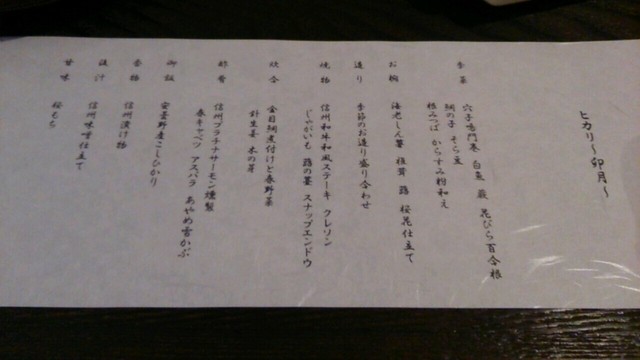 ヒカリ～卯月～
季菜
穴子鳴門巻 白魚 蕨 花びら百合根
鯛の子 そら豆
根みつば からすみ粉和え
お椀
海老しん薯 椎茸 蕗 桜花仕立て
造り
季節のお造り盛り合わせ
焼物
信州和牛和風ステーキ クレソン
じゃがいも 蕗の薹 スナップエンドウ
炊合
金目鯛煮付けと春野菜
針生姜 木の芽
酢肴
信州プラチナサーモン燻製
春キャベツ アスパラ あやめ雪かぶ
御飯
安曇野産こしひかり
香物
信州漬け物
汁
信州味噌仕立て
甘味
桜もち